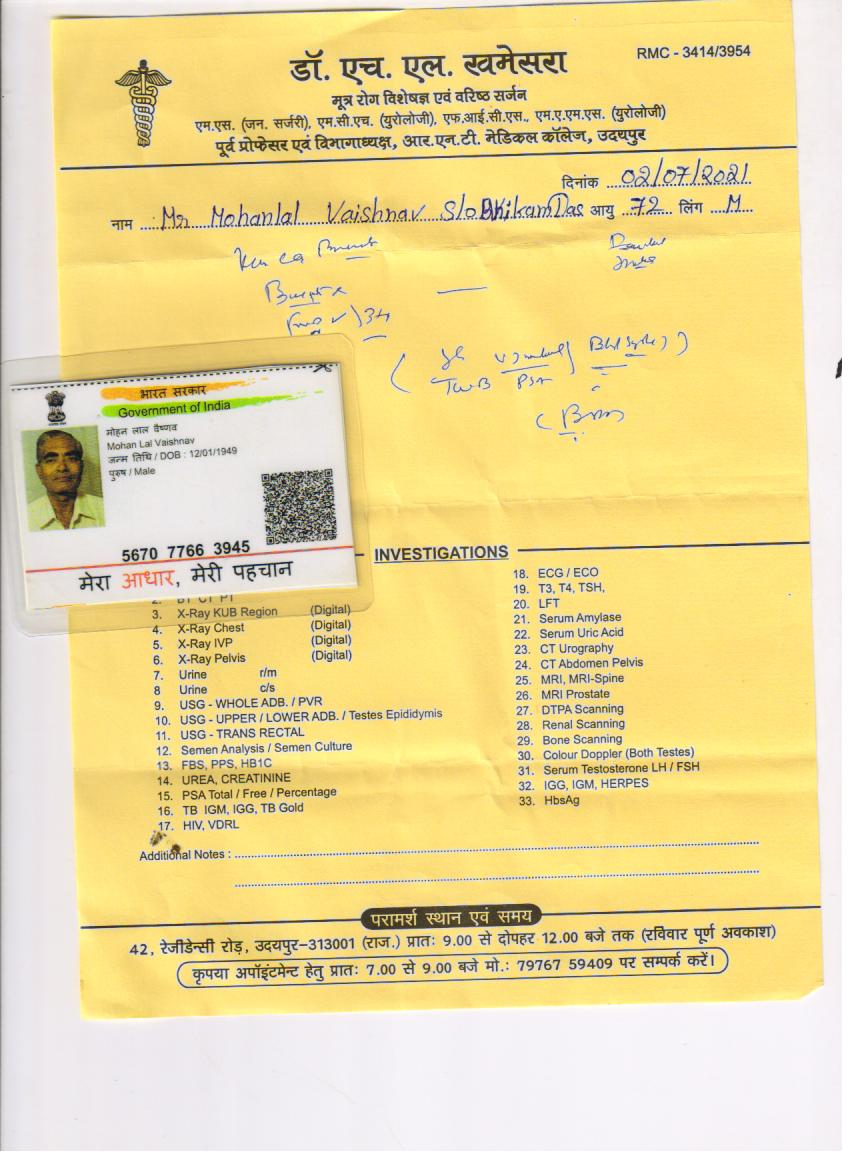 RMC - 3414/3954
डॉ. एच. एल. खमेसरा
मूत्र रोग विशेषज्ञ एवं वरिष्ठ सर्जन
एम.एस. (जन. सर्जरी), एम.सी.एच. (युरोलोजी), एफ.आई.सी.एस., एम.ए.एम.एस. (युरोलोजी)
पूर्व प्रोफेसर एवं विभागाध्यक्ष, आर.एन.टी. मेडिकल कॉलेज, उदयपुर
दिनांक 02/07/2021
नाम Mr Mohanlal Vaishnav S/o BhikamDas आयु 72 लिंग M
PSA
भारत सरकार
Government of India
मोहन लाल वैष्णव
Mohan Lal Vaishnav
जन्म तिथि / DOB : 12/01/1949
पुरुष / Male
5670 7766 3945
मेरा आधार, मेरी पहचान
INVESTIGATIONS
2. BT CT PT
3. X-Ray KUB Region (Digital)
4. X-Ray Chest (Digital)
5. X-Ray IVP (Digital)
6. X-Ray Pelvis (Digital)
7. Urine r/m
8 Urine c/s
9. USG - WHOLE ADB. / PVR
10. USG - UPPER / LOWER ADB. / Testes Epididymis
11. USG - TRANS RECTAL
12. Semen Analysis / Semen Culture
13. FBS, PPS, HB1C
14. UREA, CREATININE
15. PSA Total / Free / Percentage
16. TB IGM, IGG, TB Gold
17. HIV, VDRL
18. ECG / ECO
19. T3, T4, TSH,
20. LFT
21. Serum Amylase
22. Serum Uric Acid
23. CT Urography
24. CT Abdomen Pelvis
25. MRI, MRI-Spine
26. MRI Prostate
27. DTPA Scanning
28. Renal Scanning
29. Bone Scanning
30. Colour Doppler (Both Testes)
31. Serum Testosterone LH / FSH
32. IGG, IGM, HERPES
33. HbsAg
Additional Notes :
परामर्श स्थान एवं समय
42, रेजीडेन्सी रोड़, उदयपुर-313001 (राज.) प्रातः 9.00 से दोपहर 12.00 बजे तक (रविवार पूर्ण अवकाश)
कृपया अपॉइंटमेन्ट हेतु प्रातः 7.00 से 9.00 बजे मो.: 79767 59409 पर सम्पर्क करें।